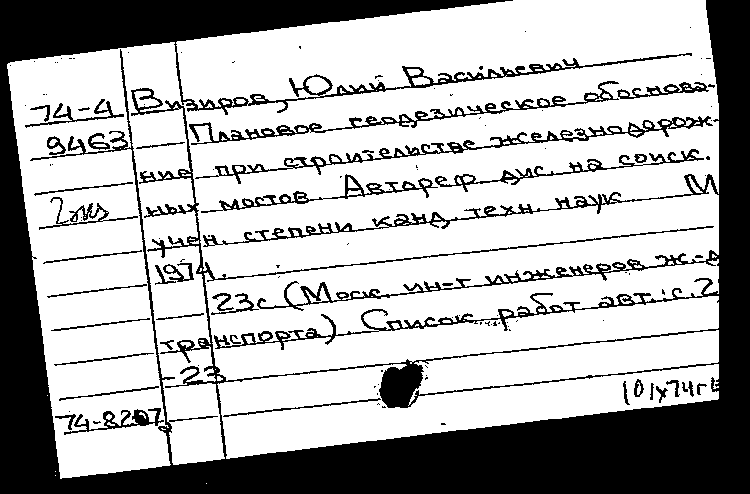 74-4 Визиров, Юлий Васильевич
9463 Плановое геодезическое обоснова-
ние при строительстве железнодорож-
2 экз ных мостов. Автореф. дис. на соиск.
учен. степени канд. техн. наук. М
1974.
23с (Моск. ин-т инженеров ж.-д
транспорта). Список работ авт.: с. 2
-23
74-8207